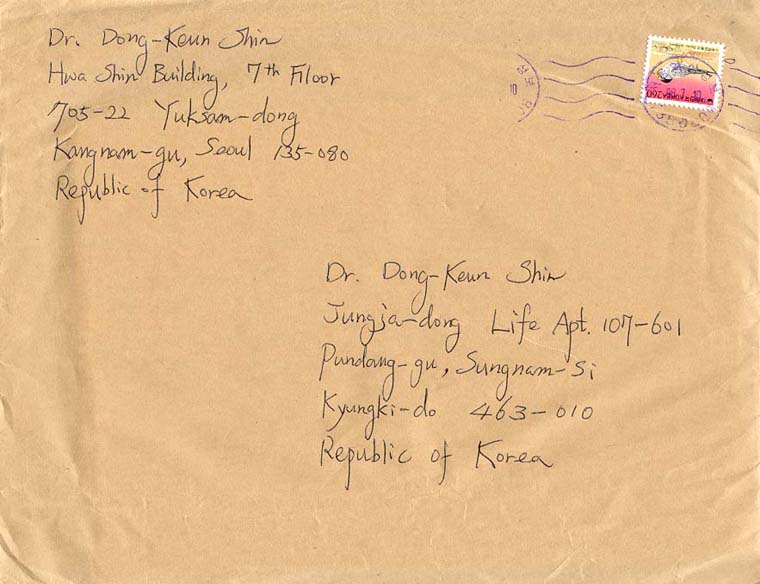 Dr. Dong-Keun Shin
Hwa Shin Building, 7th Filoor
705-22 Yuksam-dong
Kangnam-gu, Seoul 135-080
Republic of Korea
Dr. Dong-Keun Shin
Jungja-dong Life Apt. 107-601
Pundang-gu, Sungnam-Si
Kyungki-do 463-010
Republic of Korea